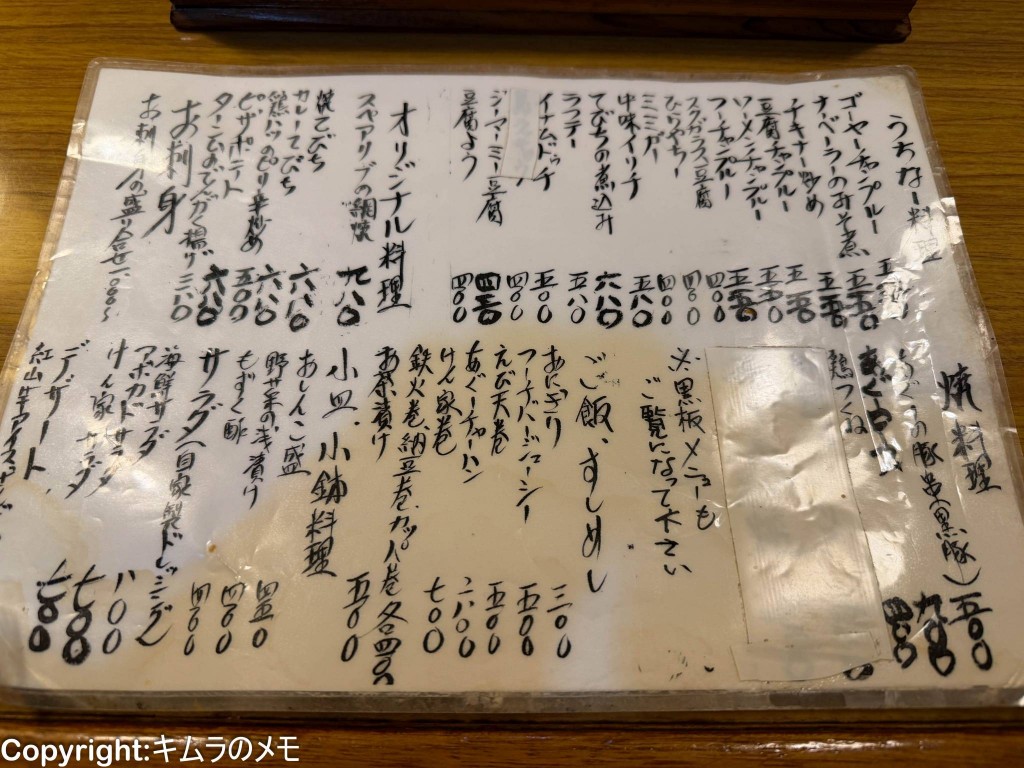 うちなー料理
ゴーヤーチャンプルー 五五〇
ナーベーラーのみそ煮 五五〇
チキナー炒め 五五〇
豆腐チャンプルー 五五〇
ソーメンチャンプルー 五五〇
フーチャンプルー
スクガラス豆腐 四〇〇
ひらやちー 四〇〇
ミミガー 四〇〇
中味イリチ 五八〇
てびちの煮込み 六八〇
ラフテー 五八〇
イナムドゥチ 五〇〇
ジーマーミー豆腐
豆腐よう 四〇〇
オリジナル料理
スペアリブの網焼 九八〇
焼てびち
カレーてびち 六八〇
ピザポテト 五〇〇
ターンムのでんがく揚げ
お刺身
焼料理
鶏つくね
※黒板メニューも
ご覧になって下さい
ご飯、すしめし
おにぎり 三〇〇
フーチバージューシー 五〇〇
えび天巻 五〇〇
あぐーチャーハン
けん家巻
鉄火巻、納豆巻、カッパ巻 各四〇〇
お茶漬け 五〇〇
小皿、小鉢料理
おしんこ盛 四五〇
野菜の浅漬け 四〇〇
もずく酢 四〇〇
サラダ(自家製ドレッシング)
海鮮サラダ
アボカドサラダ
けん家サラダ
デザート
Copyright:キムラのメモ